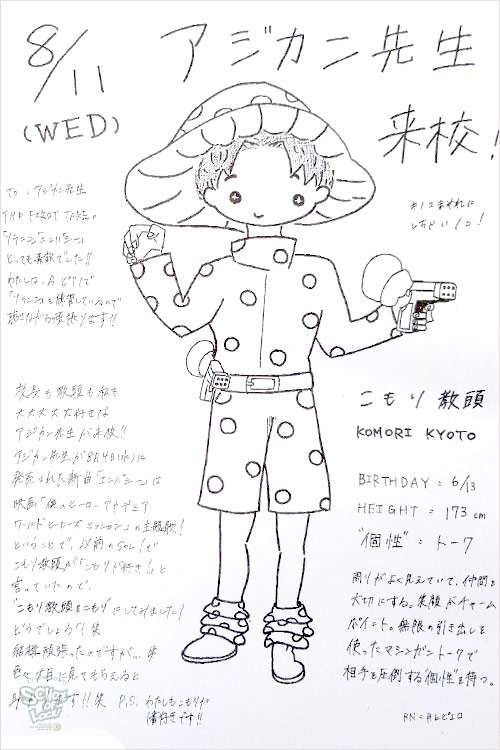 8/11
(WED)
アジカン先生
来校!
To. アジカン先生
THE FIRST TAKEの
とっても素敵でした!!
わたしは、
「ソラニン」も練習しているので
聴きながら頑張ります!!
キノコまみれに
しちゃいノコ!
校長も教頭も私も
大大大大大好きな
アジカン先生が来校!!
アジカン先生が8月4日(水)に
発売された新曲「エンパシー」は
映画「僕のヒーローアカデミア
ワールドヒーローズミッション」の主題歌!
ということで、以前のSOL!で
こもり教頭が「こもりが好き!」と
言っていたので、
"こもり教頭をこもり"にしてみました!
どうでしょう?笑
結構頑張ったのですが…笑
色々大目に見てもらえると
ます!!笑 P.S. わたしもこもりが
1番好きです!!
こもり教頭
KOMORI KYOTO
BIRTHDAY : 6/13
HEIGHT : 173cm
"個性" : トーク
周りがよく見えていて、仲間を
大切にする。笑顔がチャーム
ポイント。無限の引き出しを
使ったマシンガントークで
相手を圧倒する"個性"を持つ。
SCHOOL OF LOCK!